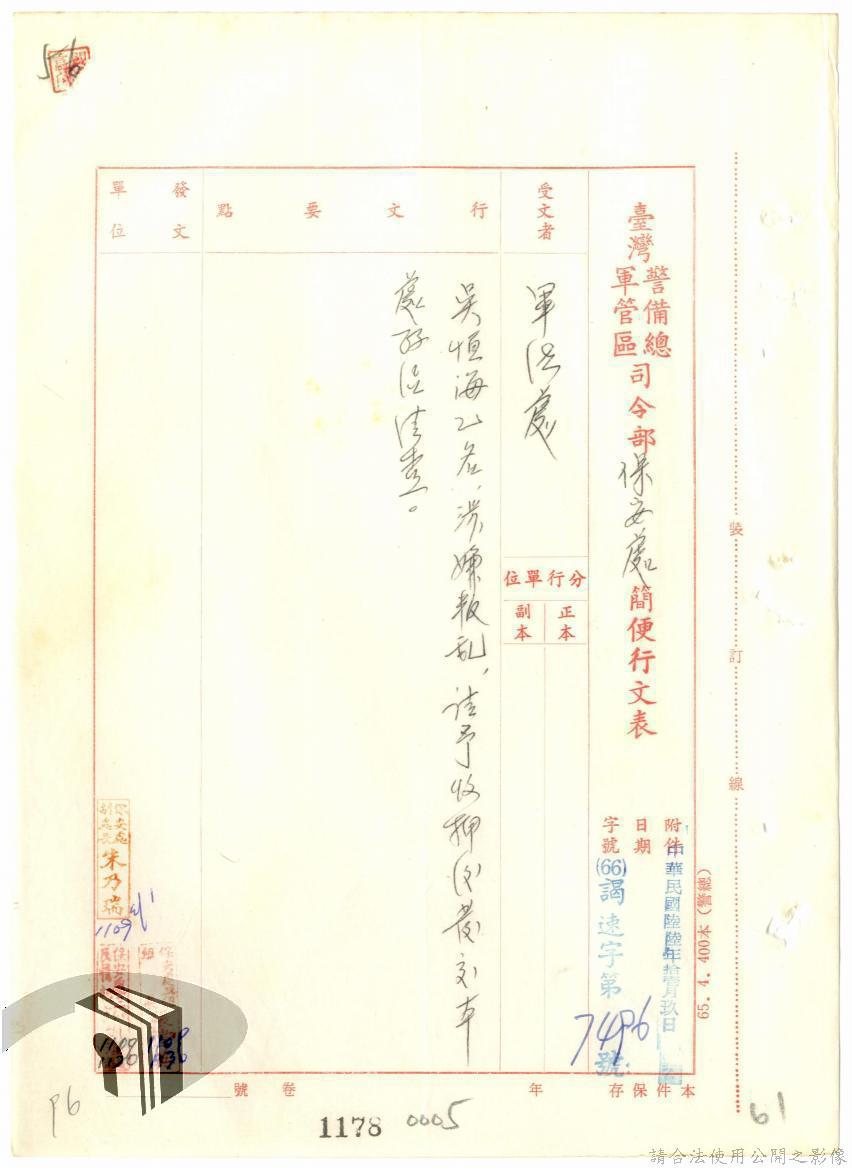 臺灣警備總司令部保安處簡便行文表
軍管區
附件
日期
中華民國陸陸年拾壹月玖日
字號
(66)謁速字第7496號
受文者
軍法處
分行單位
正本
副本
行文要點
吳恒海乙名,涉嫌叛乱,請予收押後發交本
處孫偵清查。
發文
單位
保安處
副處長
朱乃瑞
1109
1109
1130
1109
1030
本件保存
年
卷
號
裝
訂
線
65.4.400本(警總)
1178
0005
61
請合法使用公開之影像